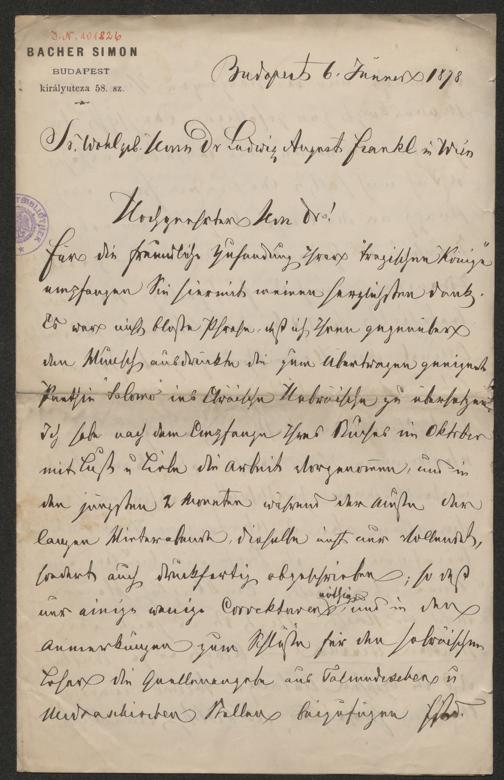 J. N. 101826
BACHER SIMON
BUDAPEST
királyutcza 58. sz.
Budapest 6. Jänner 1878
Sr. Wohlgeb. Herrn Dr Ludwig August Frankl in Wien
Hochgeehrter Herr Dr!
Für die freundliche Zusendung Ihrer "tragischen Könige"
empfangen Sie hiermit meinen herzlichsten Dank.
Es war nicht bloße Phrase, daß ich Ihnen gegenüber
den Wunsch ausdrückte die zum Übertragen geeignete
"Salomo" ins Hebräische zu übersetzen.
Ich habe nach dem Empfange Ihres Buches im Oktober
mit Lust u Liebe die Arbeit vorgenommen, und in
den jüngsten 2 Monaten während der Muße der
langen Winterabende, dieselbe nicht nur vollendet,
sondern auch druckfertig abgeschrieben, so daß
nur einige wenige Correkturen nöthig, und in den
Anmerkungen zum Schluße für den hebräischen
Leser die Quellenangabe aus Talmudischen u
Midraschischen Stellen beizufügen sind.